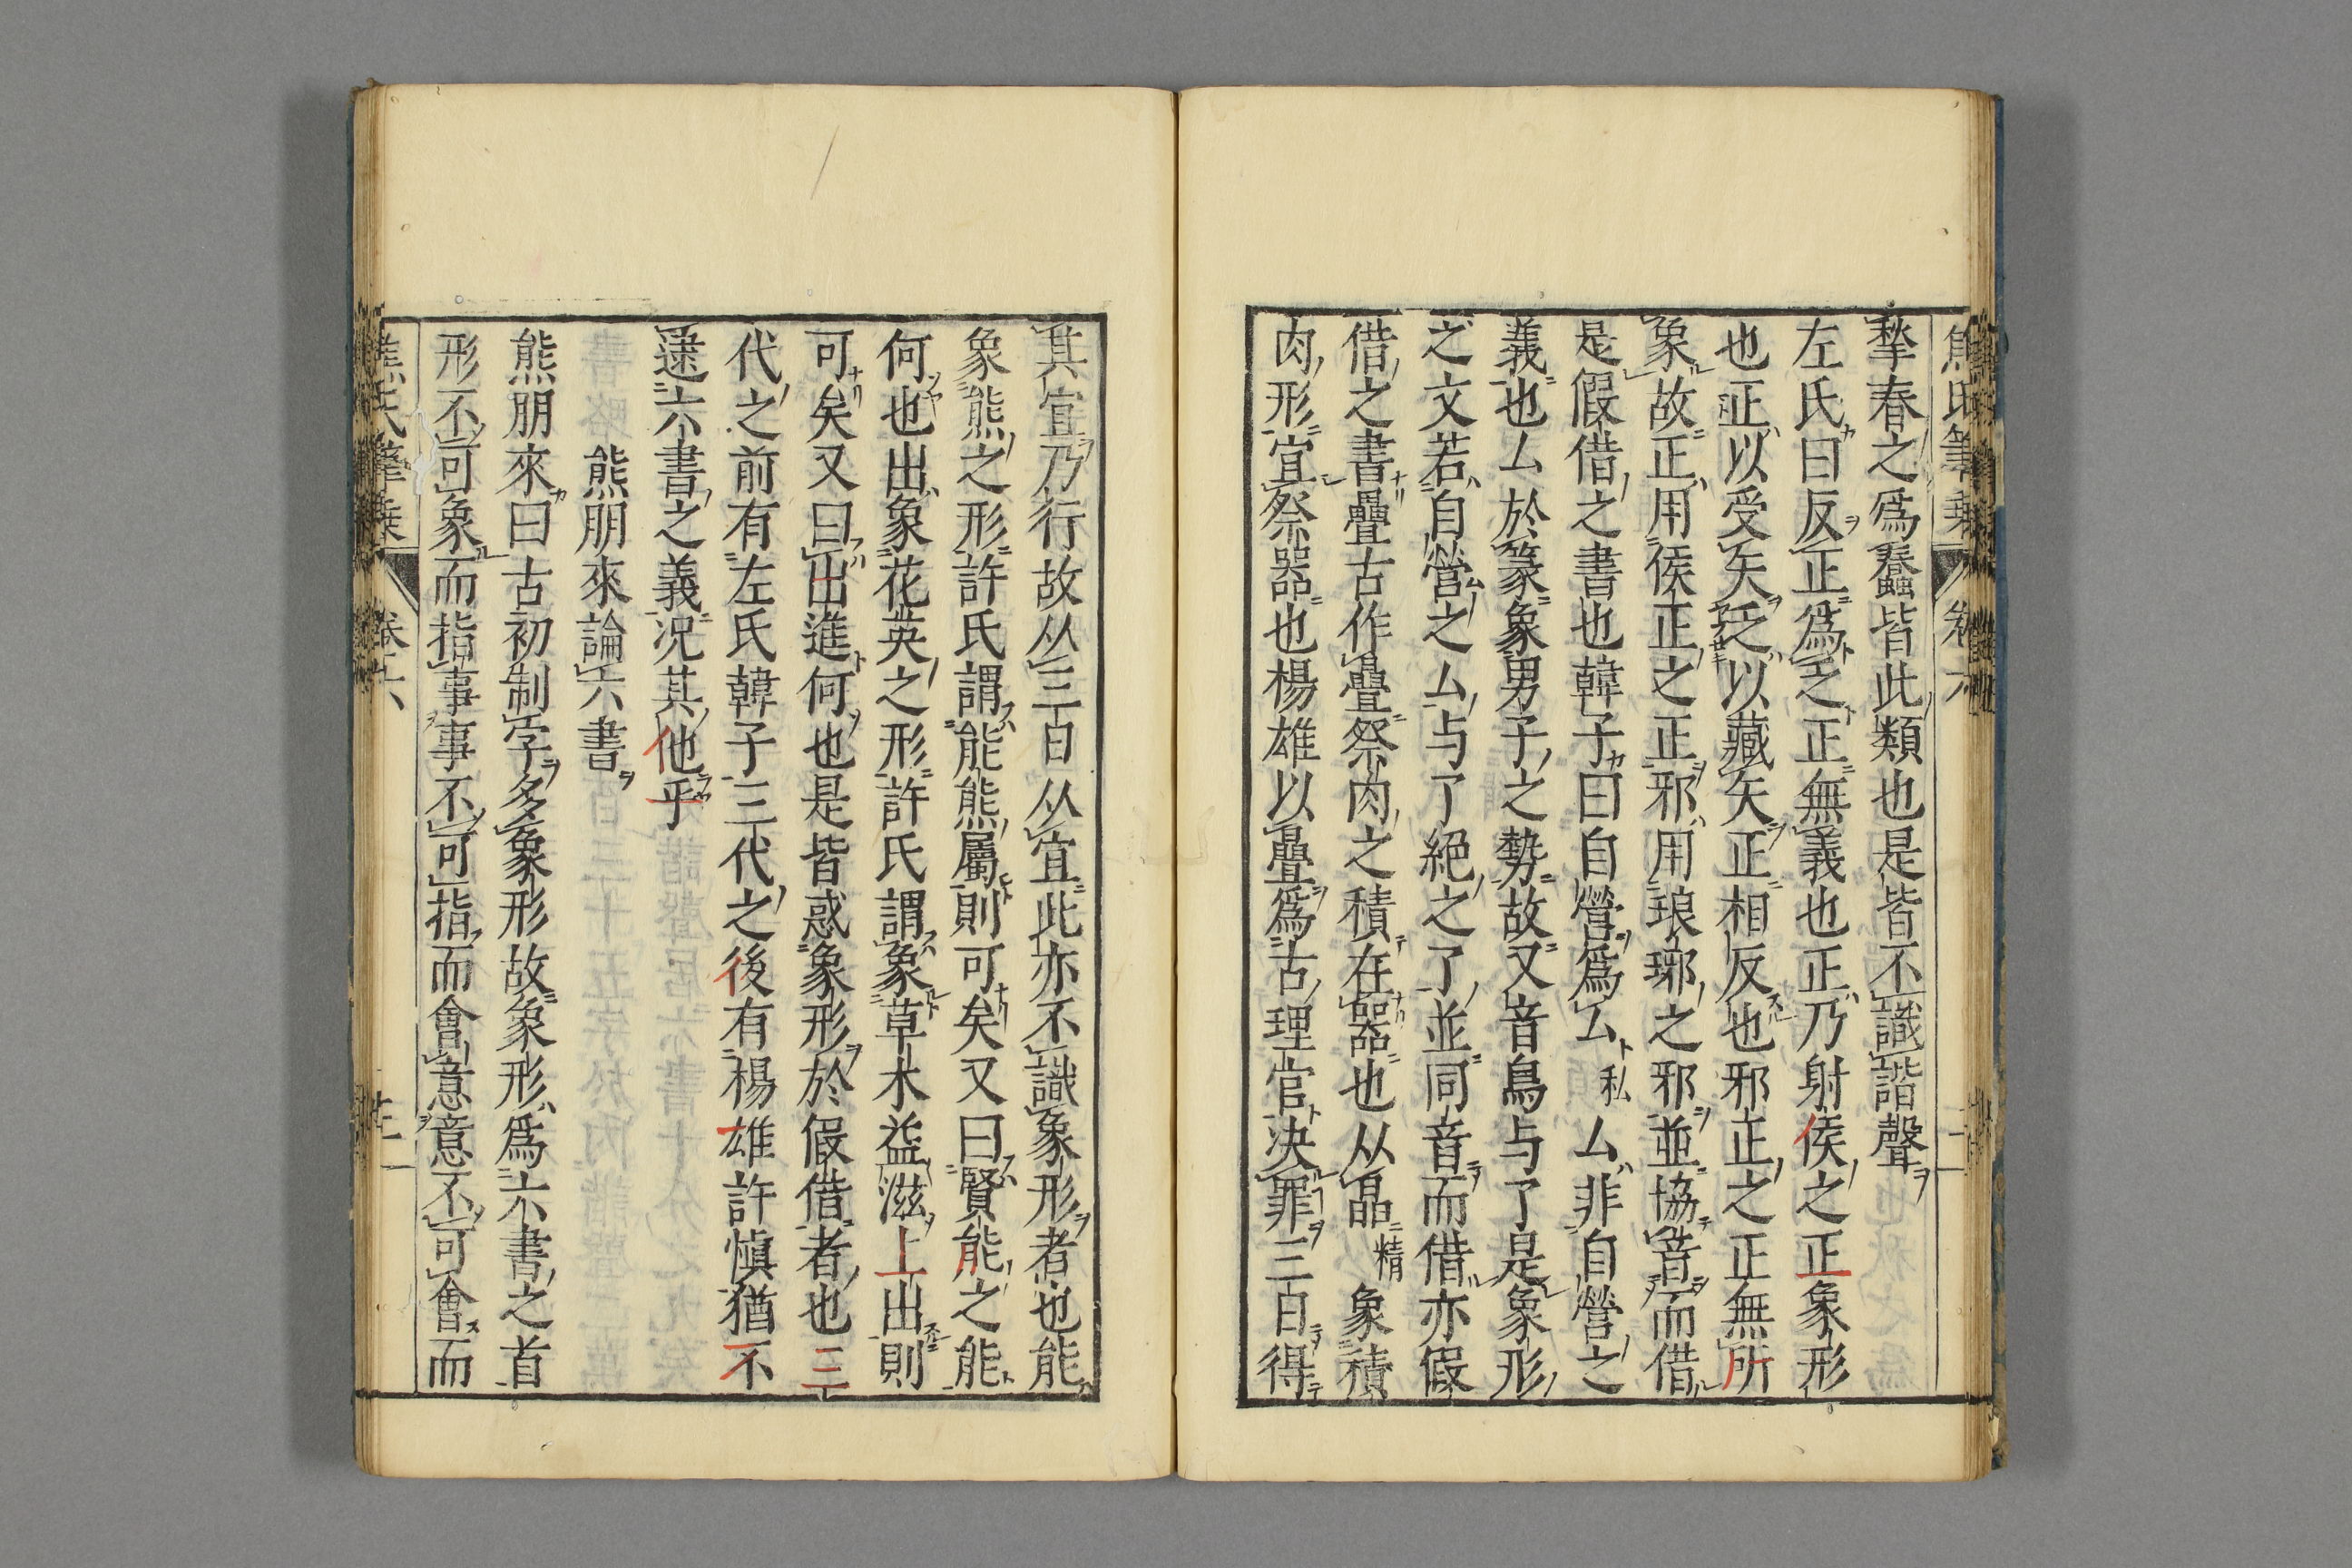 焦氏筆乗 卷六
摯春之爲蠢皆此類也是皆不識諧聲
左氏曰反正爲乏正無義也正乃射侯之正象形
也正以受矢乏以藏矢正相反也邪正之正無所
象故正用侯正之正邪用琅琊之邪並協音而借
是假借之書也韓子曰自營爲厶私厶非自營之
義也厶於篆象男子之勢故又音鳥与了是象形
之文若自營之厶与了絕之了並同音而借亦假
借之書疊古作疊祭肉之積在器也从晶精象積
肉形宜祭器也楊雄以疊爲古理官决罪三日得
其宜乃行故从三日从宜此亦不識象形者也能
象熊之形許氏謂能熊屬則可矣又曰賢能之能
何也出象花英之形許氏謂象草木益滋上出則
可矣又曰出進何也是皆惑象形於假借者也三
代之前有左氏韓子三代之後有楊雄許愼猶不
逮六書之義況其他乎
熊朋來論六書
熊朋來曰古初制字多象形故象形爲六書之首
形不可象而指事事不可指而會意意不可會而
焦氏筆乗 卷六 廿二